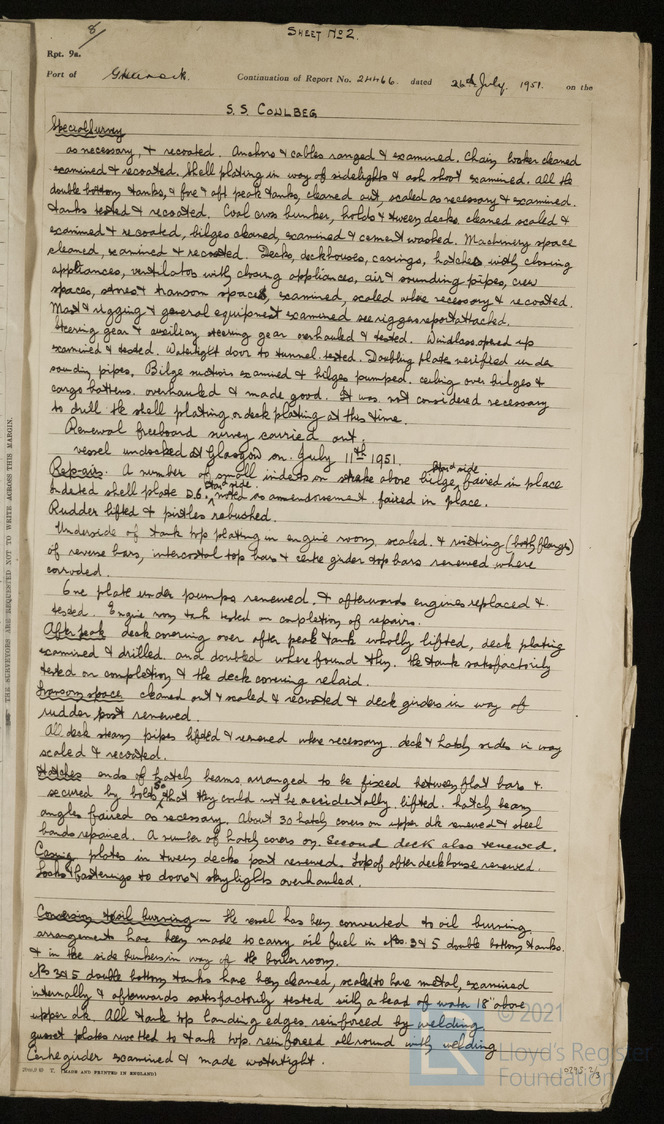 8
SHEET No 2.
Rpt. 9a.
Port of Greenock. Continuation of Report No. 24466. dated 26th July, 1951. on the
S.S. COWLBEG
Special Survey
as necessary, & recoated. Anchors & cables ranged & examined. Chain locker cleaned
examined & recoated. Shell plating in way of sidelights & ash shoot examined. All the
double bottom tanks, & fore & aft peak tanks, cleaned out, scaled as necessary & examined.
tanks tested & recoated. Coal cross bunker, holds & tween decks cleaned scaled &
examined & recoated, bilges cleaned, examined & cement washed. Machinery space
cleaned, examined & recoated. Decks, deckhouses, casings, hatches with closing
appliances, ventilators with closing appliances, air & sounding pipes, crew
spaces, stores & transom spaces, examined, scaled where necessary & recoated.
Mast & rigging & general equipment examined see riggers report attached.
Steering gear & auxiliary steering gear overhauled & tested. Windlass opened up
examined & tested. Watertight door to tunnel tested. Doubling plates verified under
sounding pipes, Bilge suctions examined & bilges pumped. ceiling over bilges &
cargo battens. overhauled & made good. It was not considered necessary
to drill the shell plating or deck plating at this time.
Renewal freeboard survey carried out.
vessel undocked at Glasgow on July 11th 1951.
Repairs. A number of small indents on strake above bilge, Star'd side faired in place
Indented shell plate D.6. Star'd side noted as amendorsement faired in place.
Rudder lifted & pintles rebushed.
Underside of tank top plating in engine room, scaled. & rivetting (both flanges)
of reverse bars, intercostal top bars & centre girder top bars renewed where
corroded.
One plate under pumps renewed. & afterwards engines replaced &
tested. Engine room tank tested on completion of repairs.
After peak deck covering over after peak tank wholly lifted, deck plating
examined & drilled. and doubled where found thin. the tank satisfactorily
tested on completion & the deck covering relaid.
transom space cleaned out & scaled & recoated & deck girders in way of
rudder post renewed.
All deck steam pipes lifted & renewed where necessary. deck & hatch sides in way
scaled & recoated.
Hatches ends of hatch beams arranged to be fixed between flat bars &
secured by bolts So that they could not be accidentally lifted. hatch beam
angles faired as necessary. About 30 hatch covers on upper dk renewed & steel
bands repaired. A number of hatch covers on Second deck also renewed.
Casing plates in tween decks part renewed. Top of after deckhouse renewed.
Locks & fastenings to doors & skylights overhauled.
Conversion to oil burning - the vessel has been converted to oil burning.
arrangements have been made to carry oil fuel in Nos. 3 & 5 double bottom tanks.
& in the side bunkers in way of the boiler room.
Nos 3 & 5 double bottom tanks have been cleaned, scaled to bare metal, examined
internally & afterwards satisfactorily tested with a head of water 18" above
upper dk. All tank top landing edges reinforced by welding.
gusset plates rivetted to tank top. reinforced all round with welding
Centre girder examined & made watertight.
THE SURVEYORS ARE REQUESTED NOT TO WRITE ACROSS THIS MARGIN.
T. (MADE AND PRINTED IN ENGLAND)
© 2021
Lloyd's Register
Foundation
0295 2/3